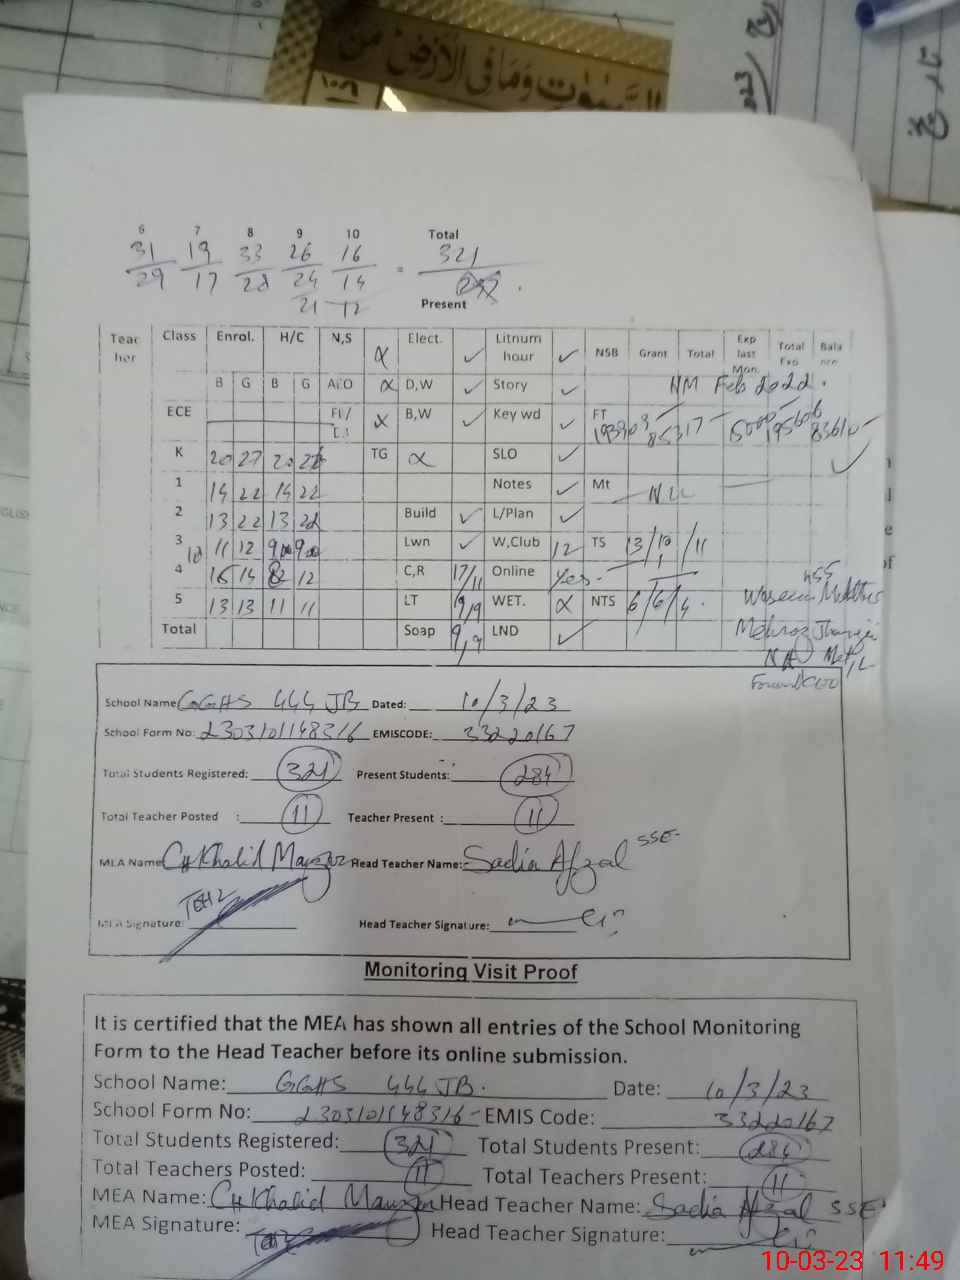 السَّمٰوٰتِ وَمَا فِى الْاَرْضِ مَنْ
تاریخ
6 7 8 9 10 Total
31 19 33 26 16 = 321
29 17 28 24 14
21 12 Present
Teac her Class Enrol. H/C N,S Elect. ✓ Litnum hour ✓ NSB Grant Total Exp last Mon. Total Exp Bala nce
B G B G D,W ✓ Story ✓ NM Feb 2022.
ECE B,W ✓ Key wd ✓ FT 85317
K 20 27 20 TG SLO ✓
1 14 22 14 22 Notes ✓ Mt Nil
2 13 22 13 22 Build ✓ L/Plan ✓
3 11 12 Lwn ✓ W,Club 12 TS 13/10/11
4 12 C,R 17/11 Online Yes.
5 13 13 11 11 LT 9/9 WET. NTS 6/6/4.
Total Soap 9,9 LND ✓
School Name: GGHS 444 JB Dated: 10/3/23
School Form No: 2303101148316 EMISCODE: 33220167
Total Students Registered: 321 Present Students: 284
Total Teacher Posted : 11 Teacher Present : 11
MEA Name: CH Khalid Manzoor Head Teacher Name: Sadia Afzal SSE
MEA Signature: Head Teacher Signature:
Monitoring Visit Proof
It is certified that the MEA has shown all entries of the School Monitoring
Form to the Head Teacher before its online submission.
School Name: GGHS 444 JB. Date: 10/3/23
School Form No: 2303101148316 EMIS Code: 33220167
Total Students Registered: 321 Total Students Present: 284
Total Teachers Posted: 11 Total Teachers Present: 11
MEA Name: CH Khalid Manzoor Head Teacher Name: Sadia Afzal SSE
MEA Signature: Head Teacher Signature:
10-03-23 11:49